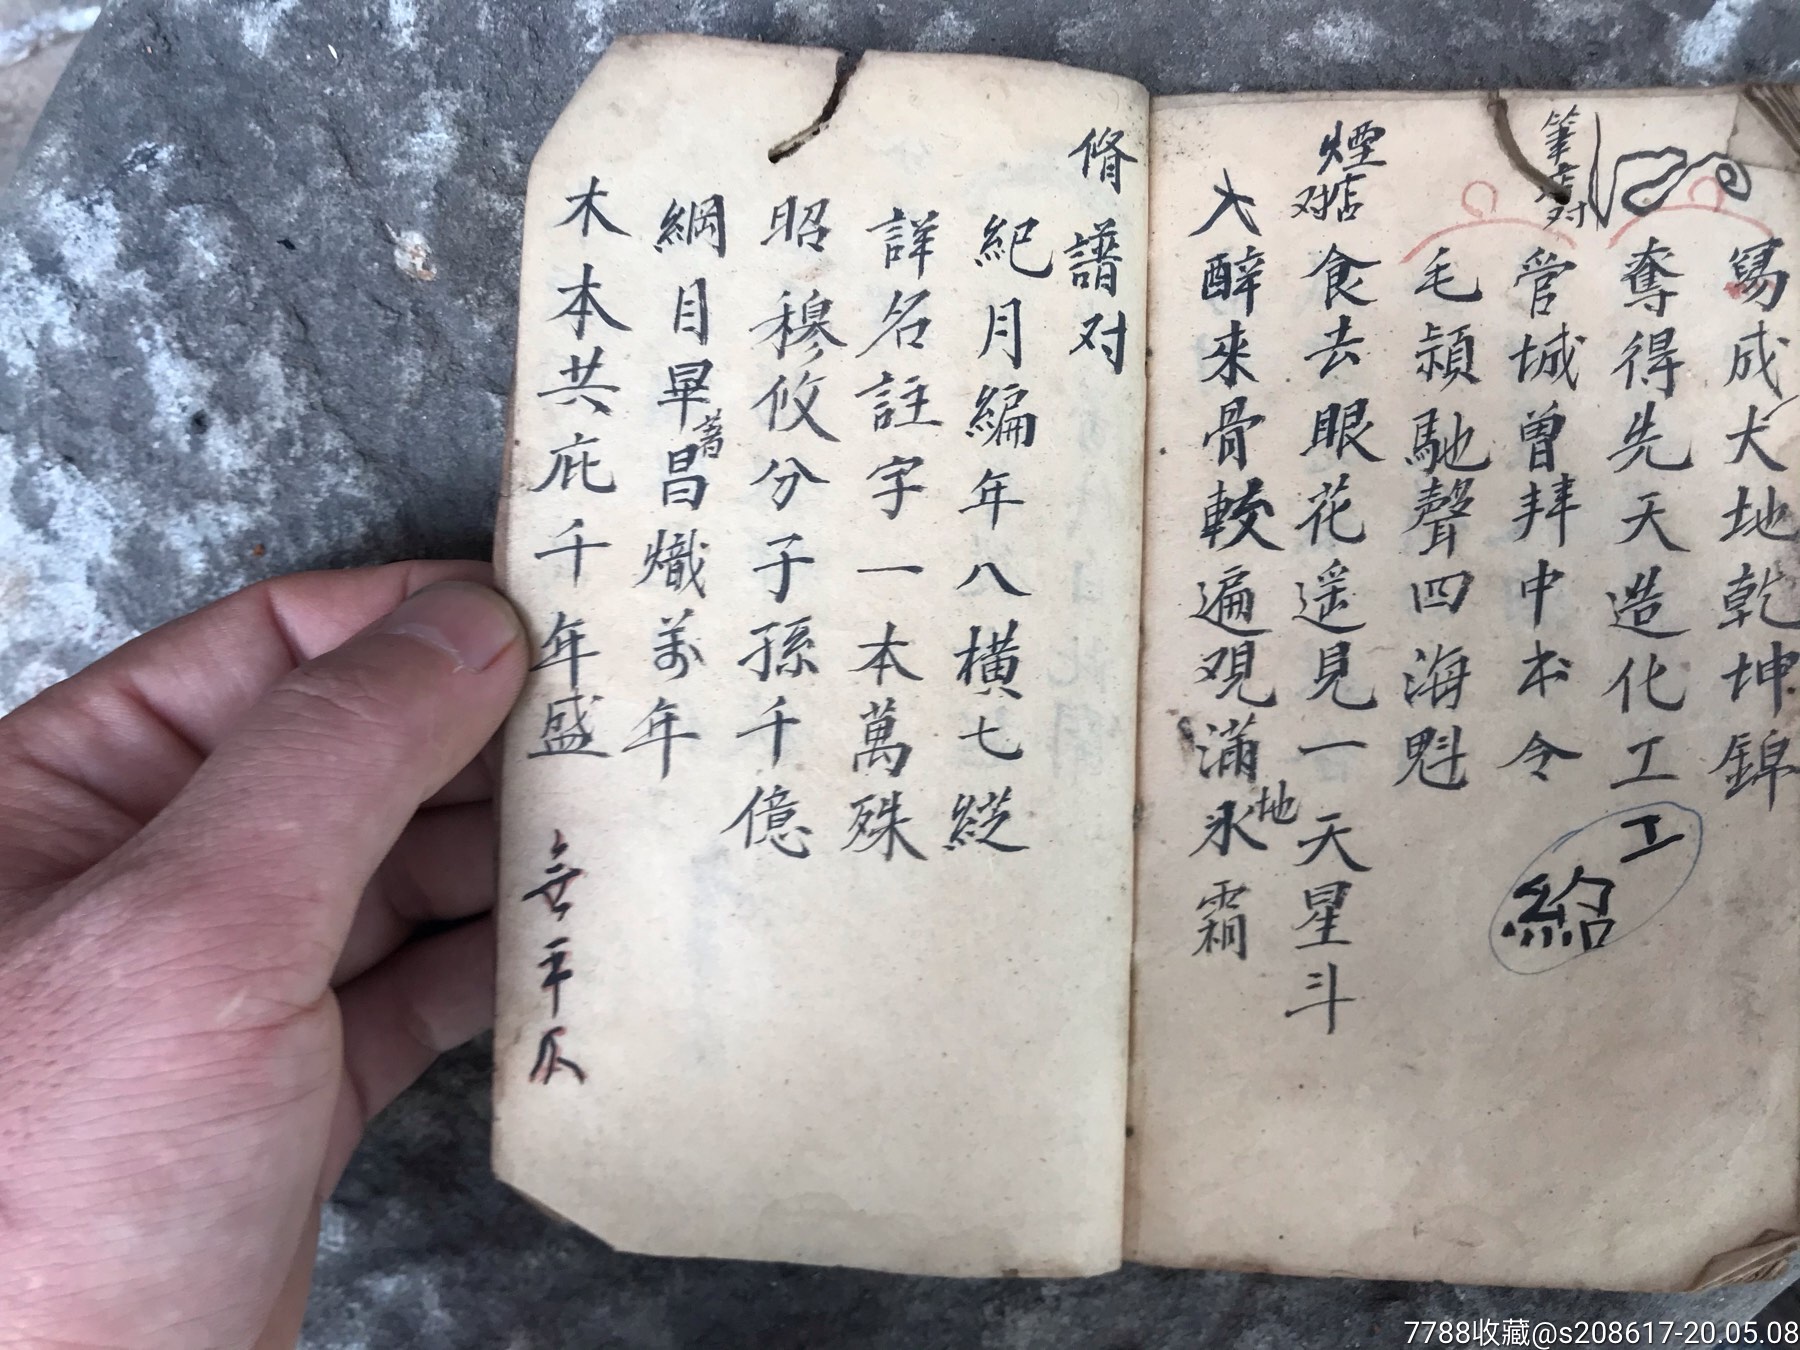 寫成大地乾坤錦
奪得先天造化工
筆店对
管城曾拜中书令
毛潁馳聲四海魁
工
給
煙店对
食去眼花遥見一天星斗
醉來骨較遍观滿地氷霜
脩譜对
紀月編年八橫七縱
詳名註字一本萬殊
昭穆攸分子孫千億
綱目畢著昌熾萬年
木本共庇千年盛
7788收藏@s208617-20.05.08